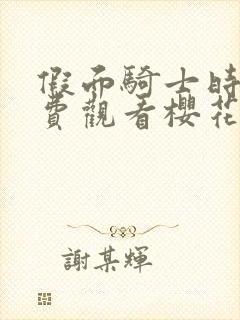 假面騎士時
費觀看櫻花
謝某輝